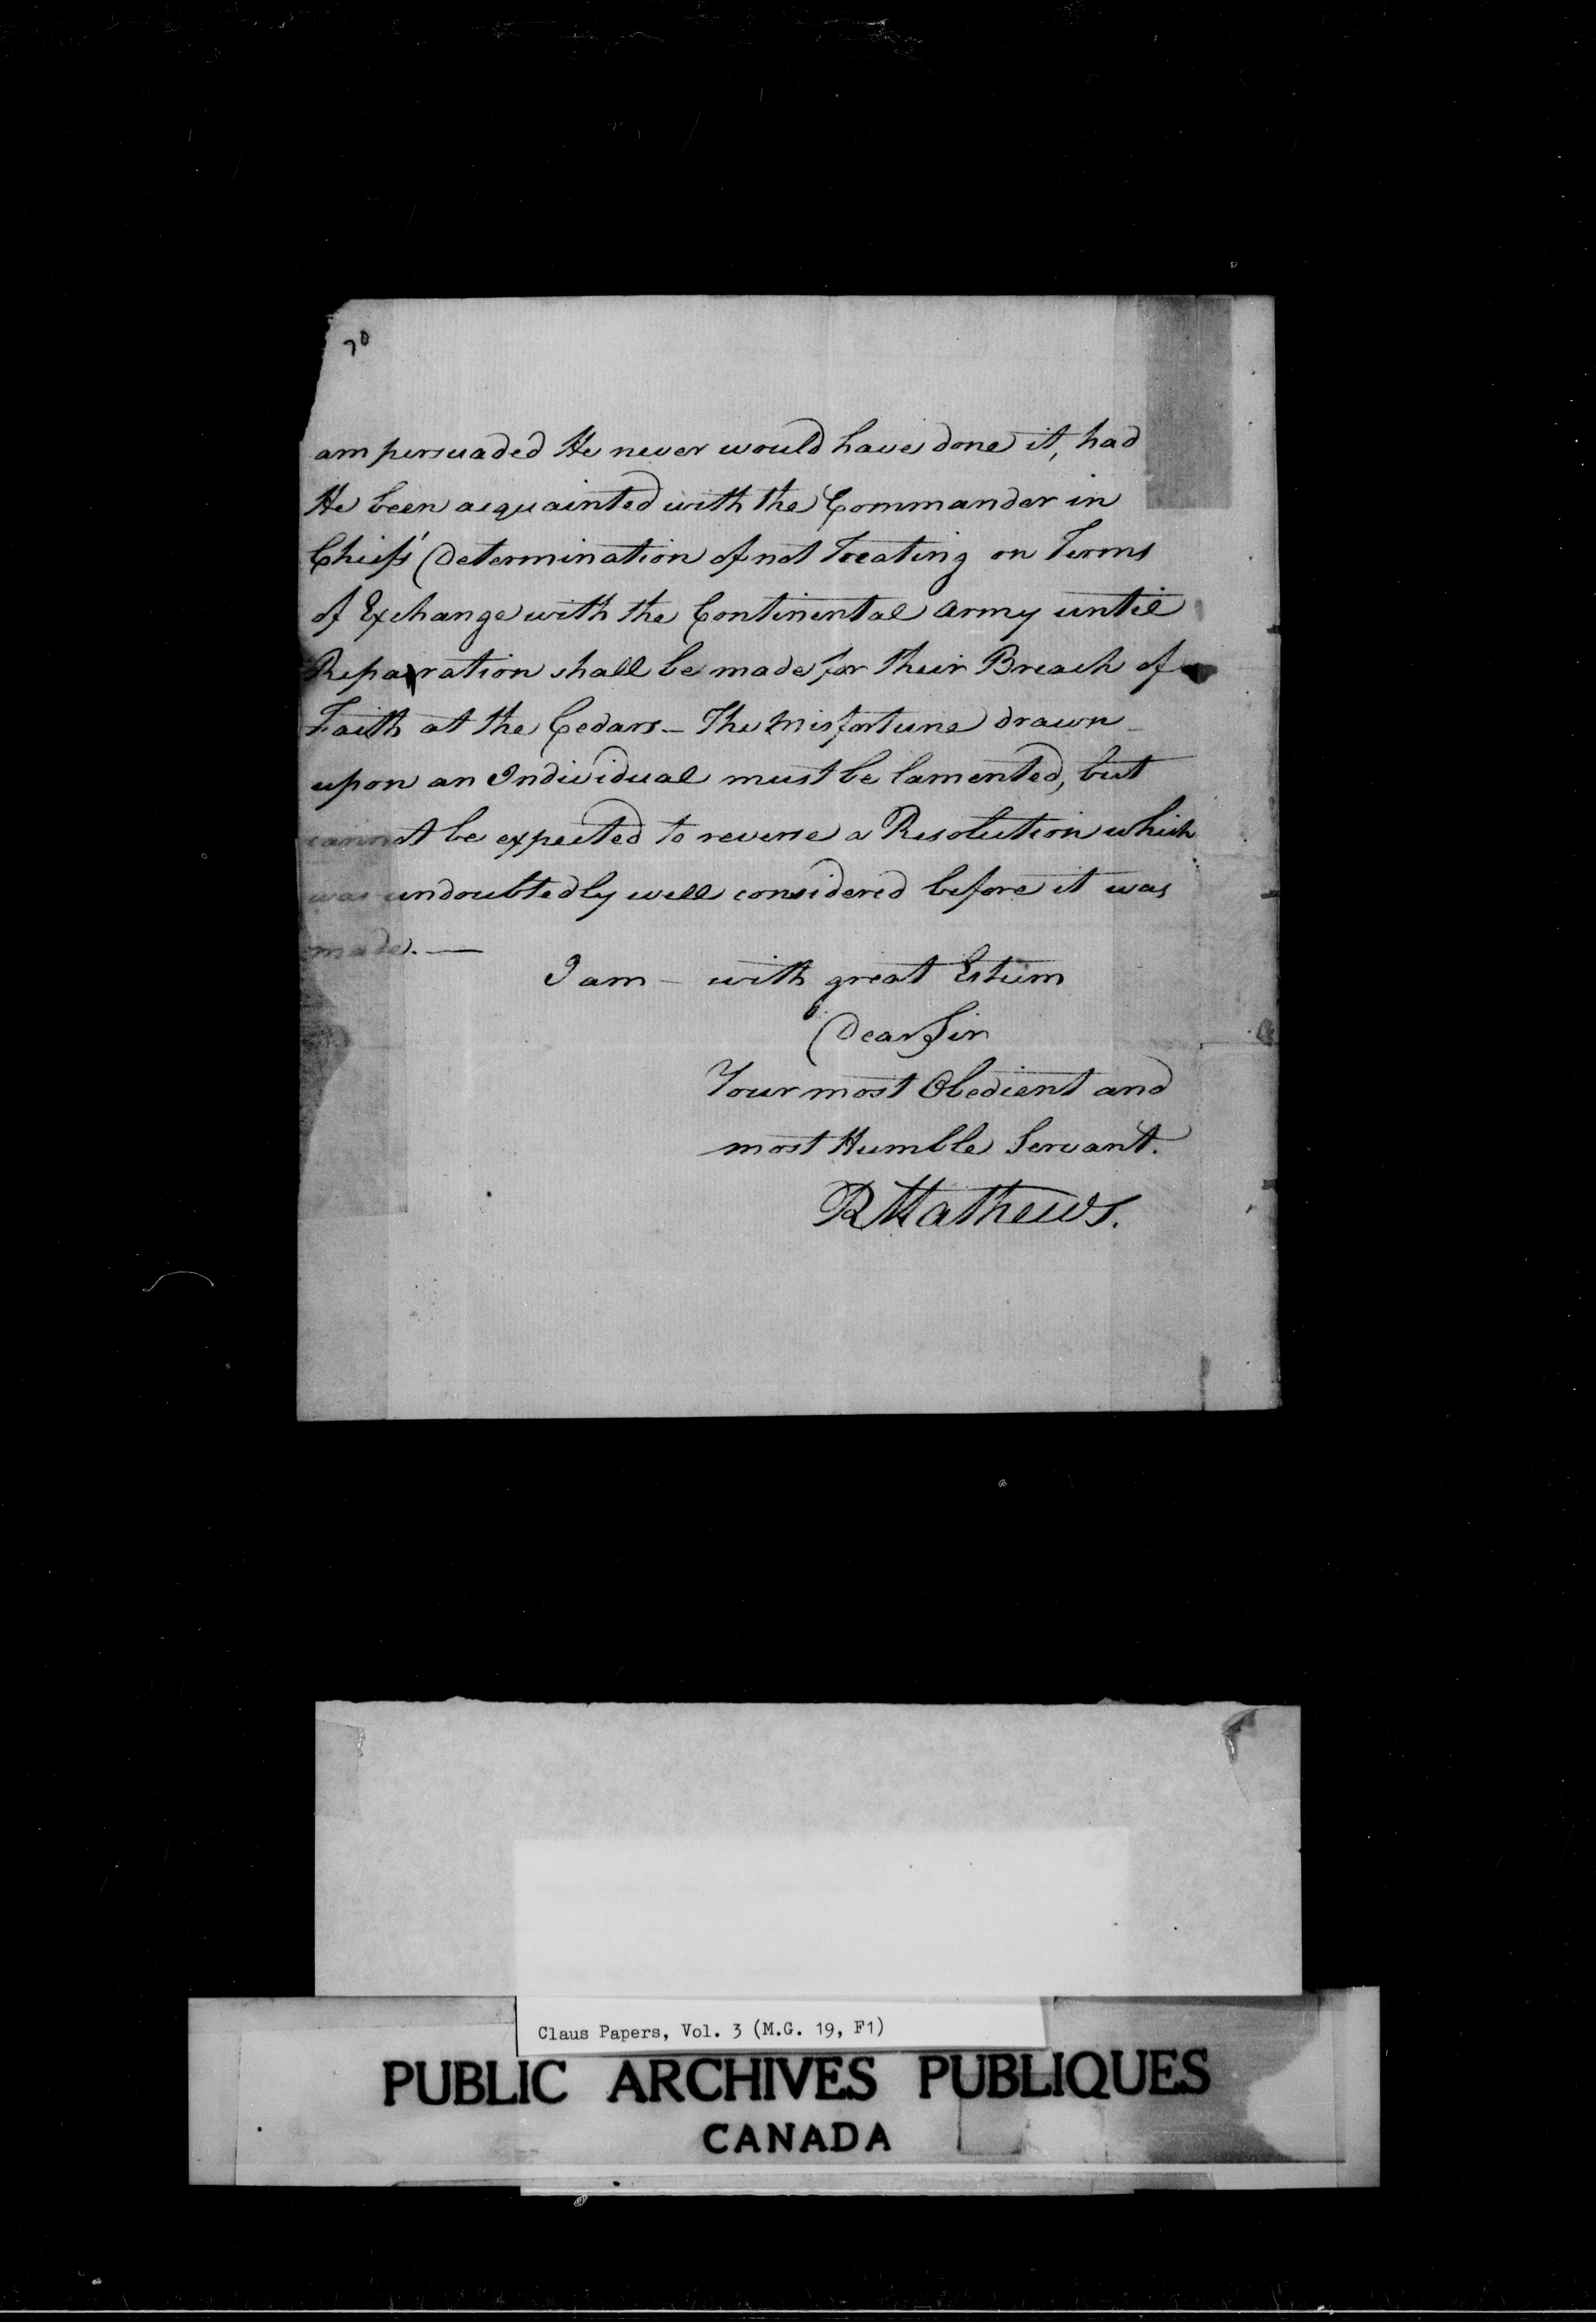 70
am persuaded He never would have done it, had
He been acquainted with the Commander in
Chief's Determination of not Treating on Terms
of Exchange with the Continental Army until
Reparation shall be made for their Breach of
Faith at the Cedars - The Misfortune drawn
upon an Individual must be lamented, but
cannot be expected to reverse a Resolution which
was undoubtedly well considered before it was
made. —
I am - with great Esteem
Dear Sir
Your most Obedient and
most Humble Servant.
R Mathews.
Claus Papers, Vol. 3 (M.G. 19, F1)
PUBLIC ARCHIVES PUBLIQUES
CANADA